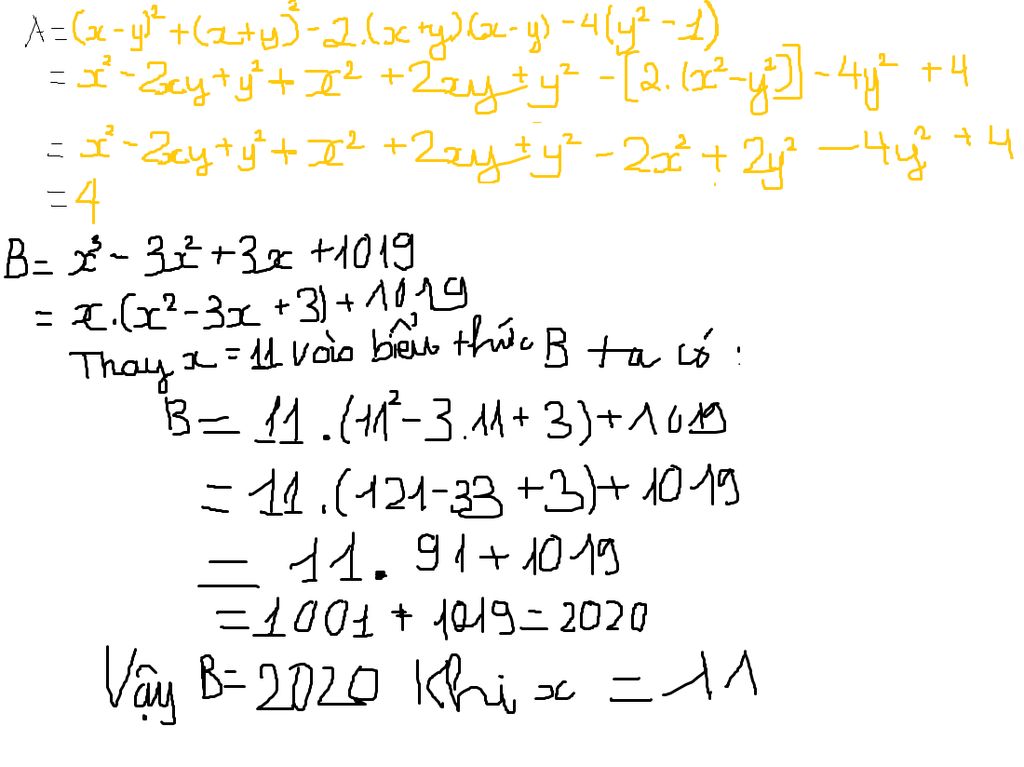 A = (x - y)² + (x + y)² - 2.(x + y).(x - y) - 4(y² - 1)
= x² - 2xy + y² + x² + 2xy + y² - [2.(x² - y²)] - 4y² + 4
= x² - 2xy + y² + x² + 2xy + y² - 2x² + 2y² - 4y² + 4
= 4
B = x³ - 3x² + 3x + 1019
= x.(x² - 3x + 3) + 1019
Thay x = 11 vào biểu thức B ta có :
B = 11.(11² - 3.11 + 3) + 1019
= 11.(121 - 33 + 3) + 1019
= 11. 91 + 1019
= 1001 + 1019 = 2020
Vậy B = 2020 Khi x = 11